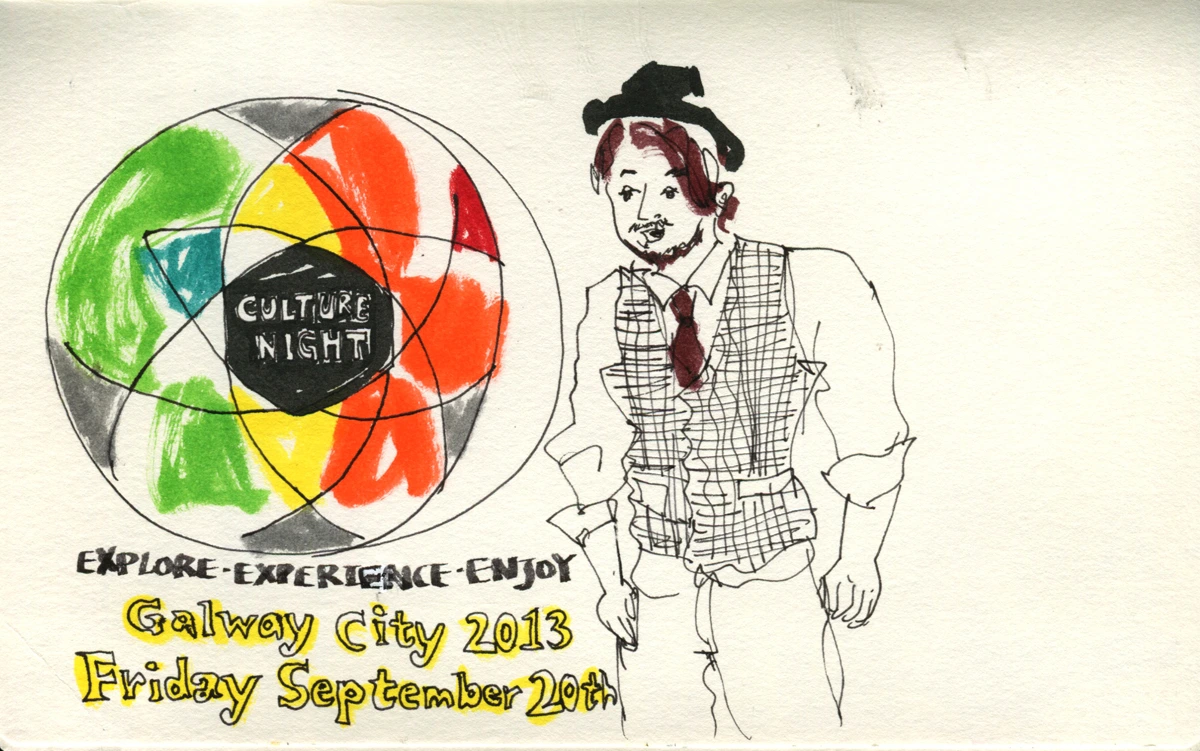 CULTURE
NIGHT
EXPLORE-EXPERIENCE-ENJOY
Galway City 2013
Friday September 20th